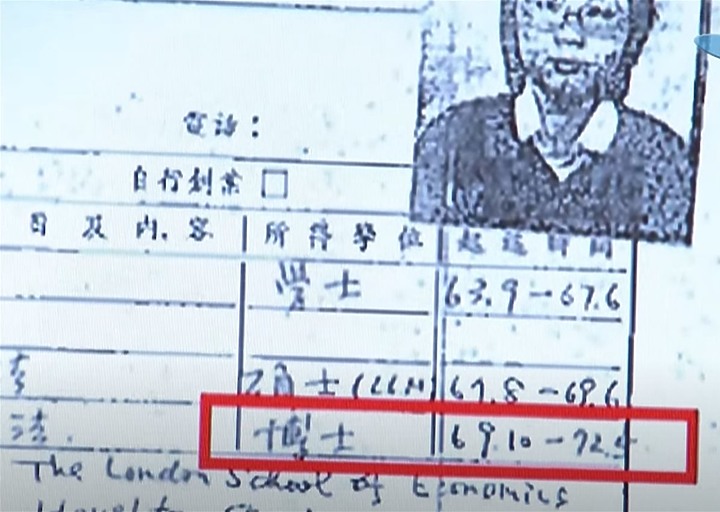 電話：
自行創業 □
目及內容 所得學位 起迄時間
學士 63.9－67.6
碩士 (LLM) 67.8－69.6
法 博士 69.10－72.5
The London School of Economics